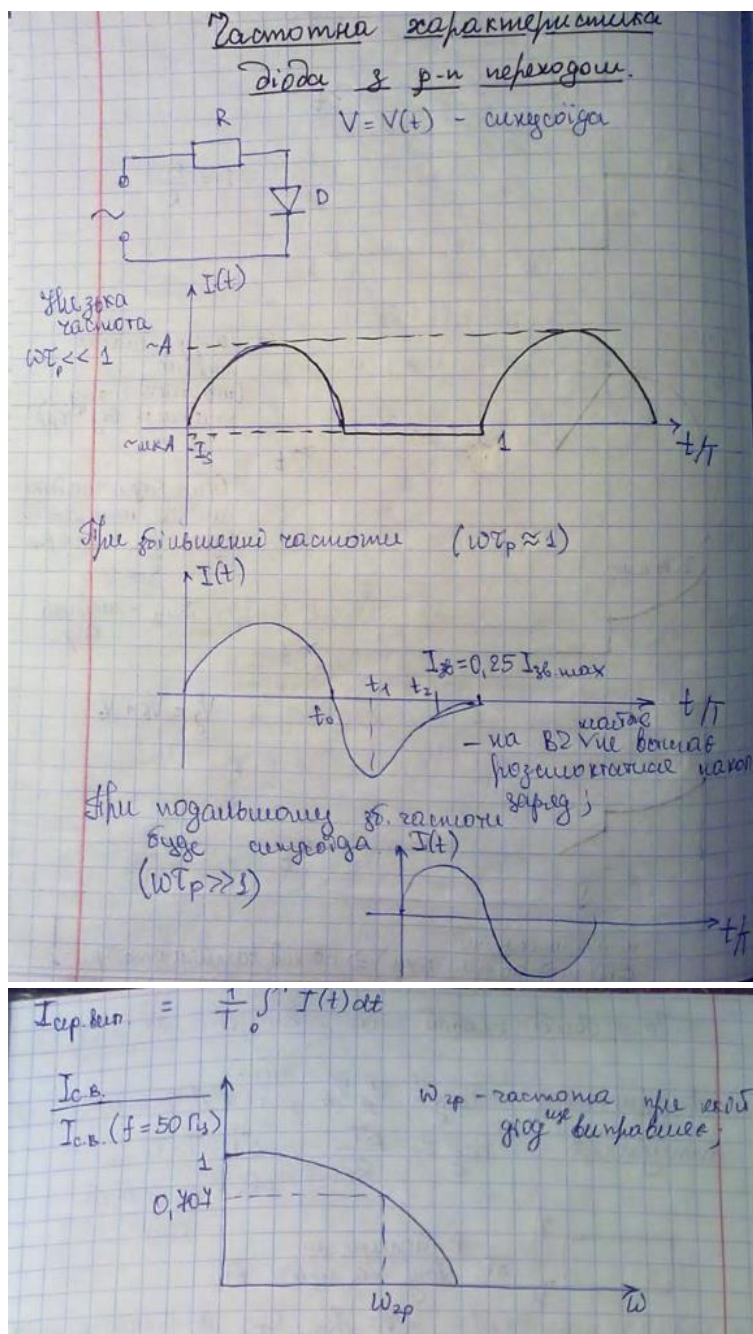 Частотна характеристика
діода з p-n переходом.
R
V = V(t) - синусоїда
D
~
I(t)
Низька
частота
ωτp << 1
~A
~мкА
Is
1
t/T
При збільшенні частоти (ωτp ≈ 1)
I(t)
Iзв = 0,25 Iзв.max
t0
t1
t2
t/T
- на ВЗ V не встигає
майже
розсмоктатися накоп
заряд;
При подальшому зб. частоти
буде синусоїда
(ωτp >> 1)
I(t)
t/T
Iср.вип. = 1/T ∫0 I(t)dt
Iс.в.
Iс.в. (f = 50 Гц)
ωгр - частота при якій
діод ще виправляє;
1
0,707
ωгр
ω